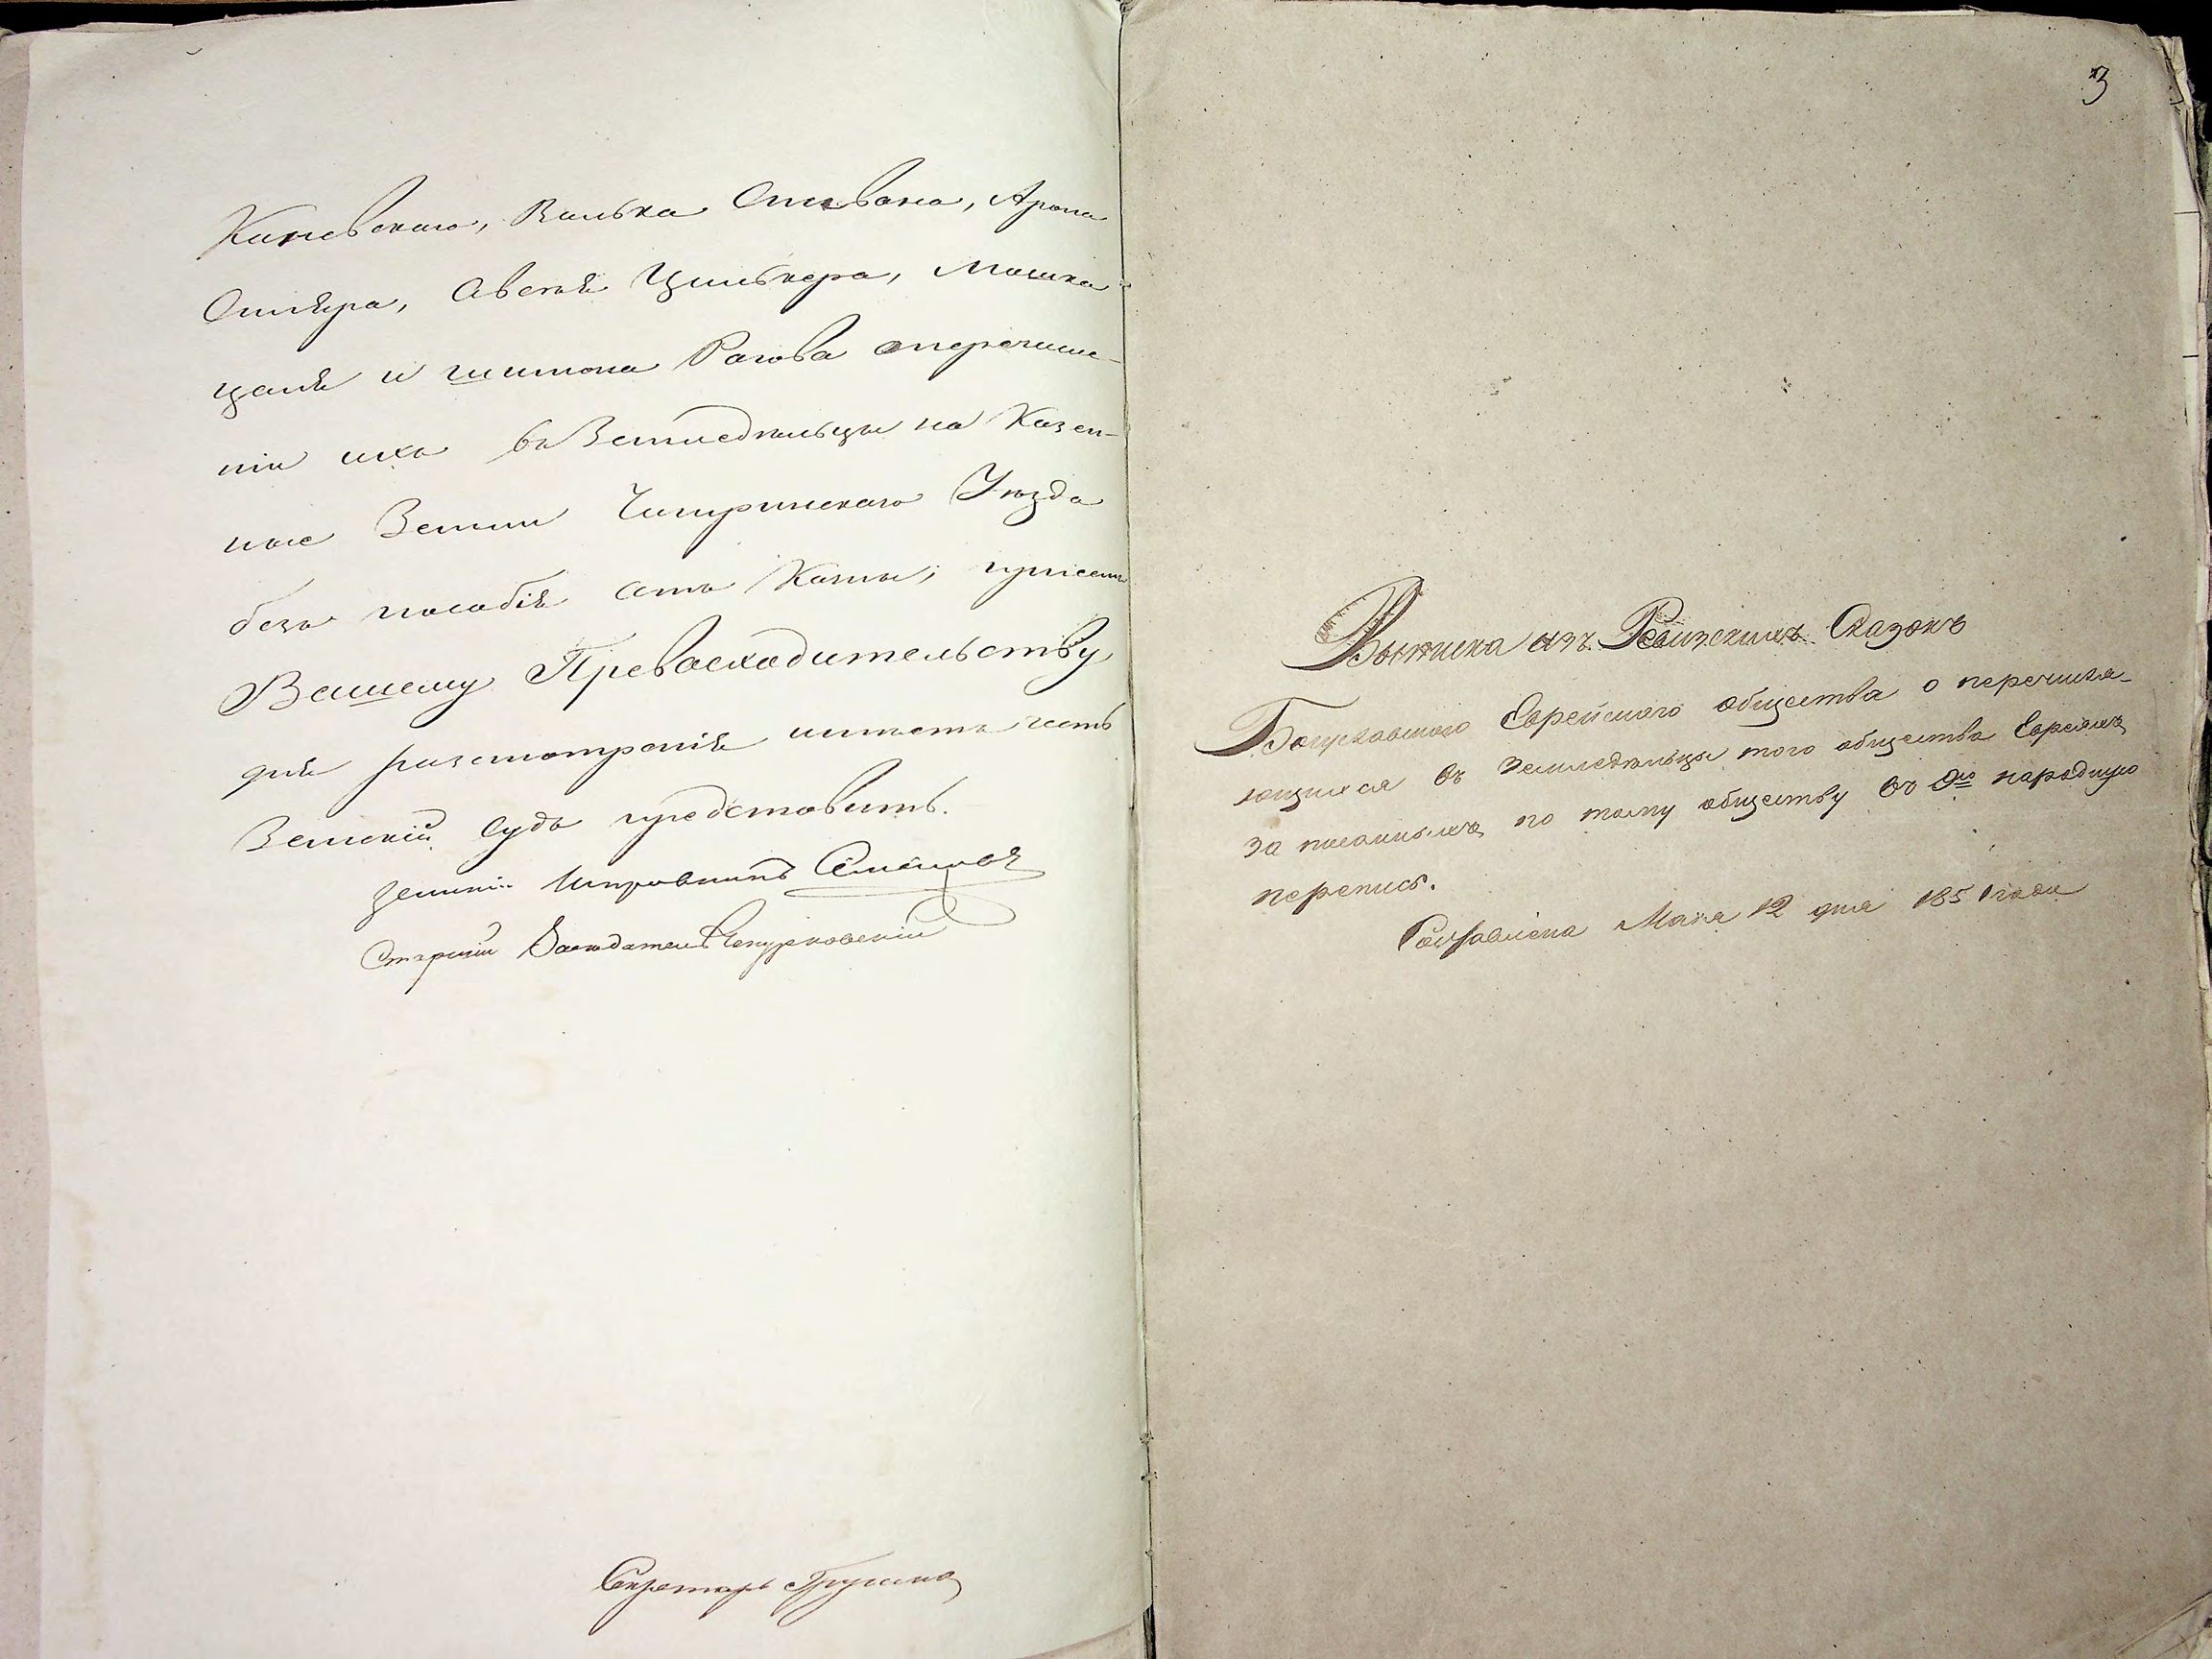 Каневскаго, Валька Сливака, Арона
Столяра, Овсея Цимбкера, Мошка
целя и шимона Рогова оперечисле-
ніи ихъ въ Земледѣльцы на Казен-
ные Земли Чигиринскаго Уѣзда
безъ пособія отъ Казны; при семъ
Вашему Превосходительству
для разсмотренія имѣетъ честь
Земскій Судъ представить.
Земскій Исправникъ
Старшій Засѣдатель
Секретарь
3
Выписка изъ Ревизскихъ Сказокъ
Богуславского Еврейского общества о перечисля-
ющихся въ Земледѣльцы того общества Евреяхъ
за писанныхъ по тому обществу въ 9ю народную
перепись.
Составлена Мая 12 дня 1851 года